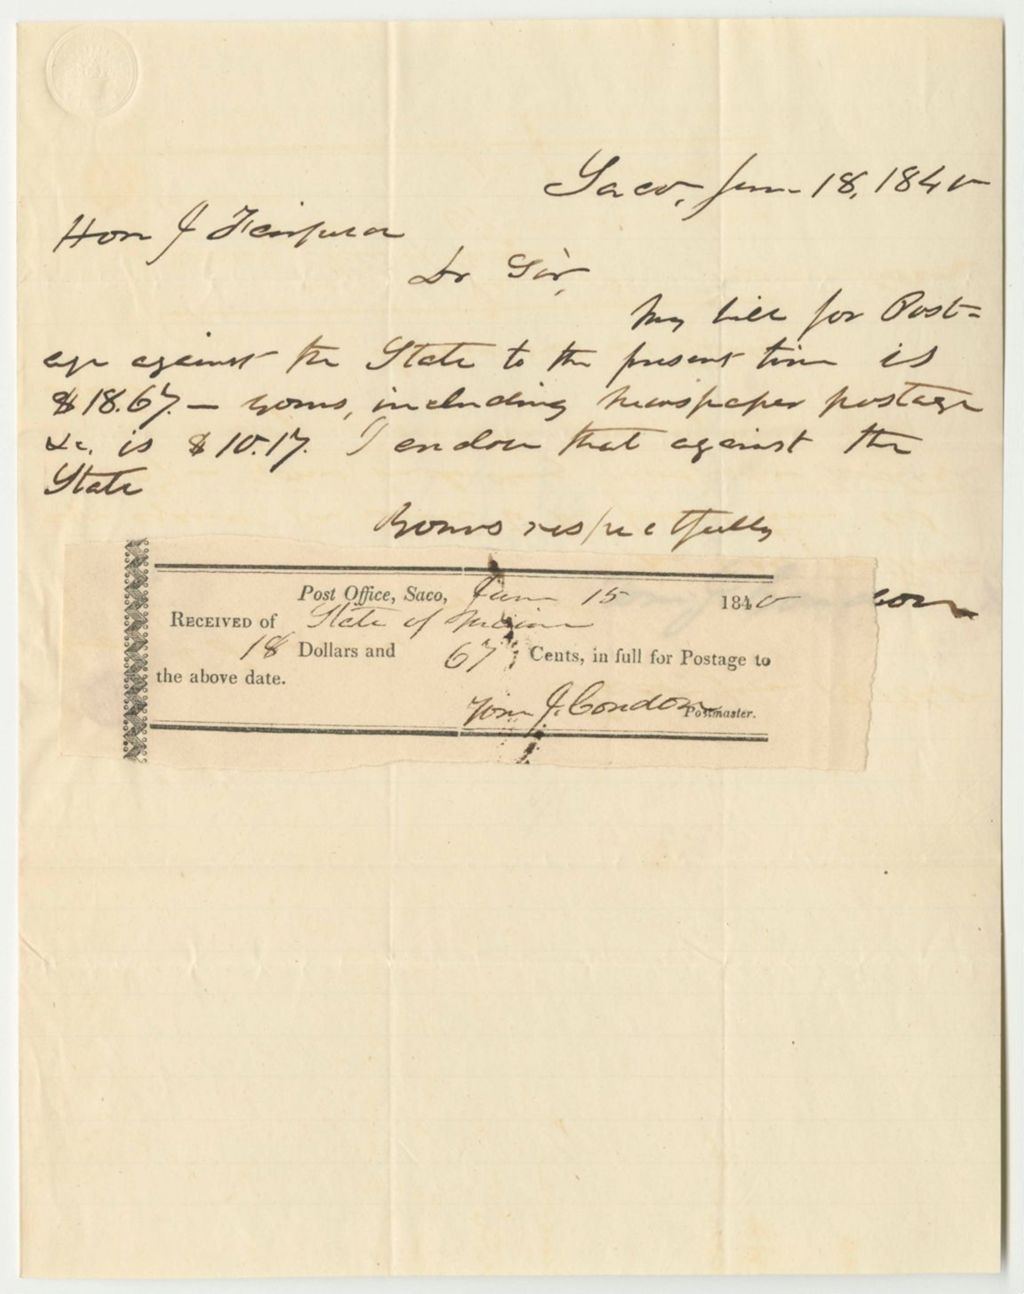 Saco, Jun- 18, 1840
Hon J Fairfield
Dr Sir,
My bill for Post=
age against the State to the present time is
$18.67. — yours, including newspaper postage
&c. is $10.17. I endorse that against the
State
Yours respectfully
Post Office, Saco, June 15 1840
RECEIVED of State of Maine
18 Dollars and 67 Cents, in full for Postage to
the above date.
J. Condon Postmaster.